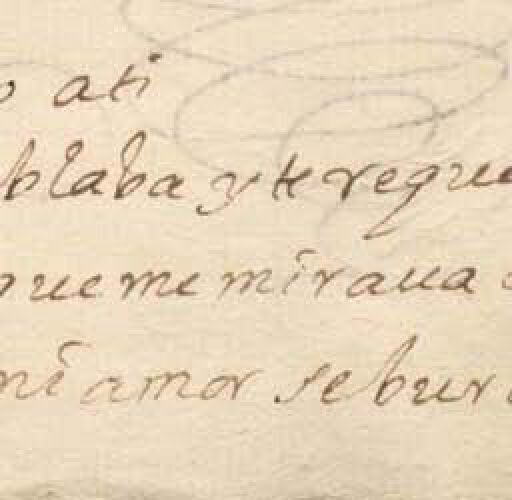 o ati
blaba y te reque
que me miraua
mi amor se bur